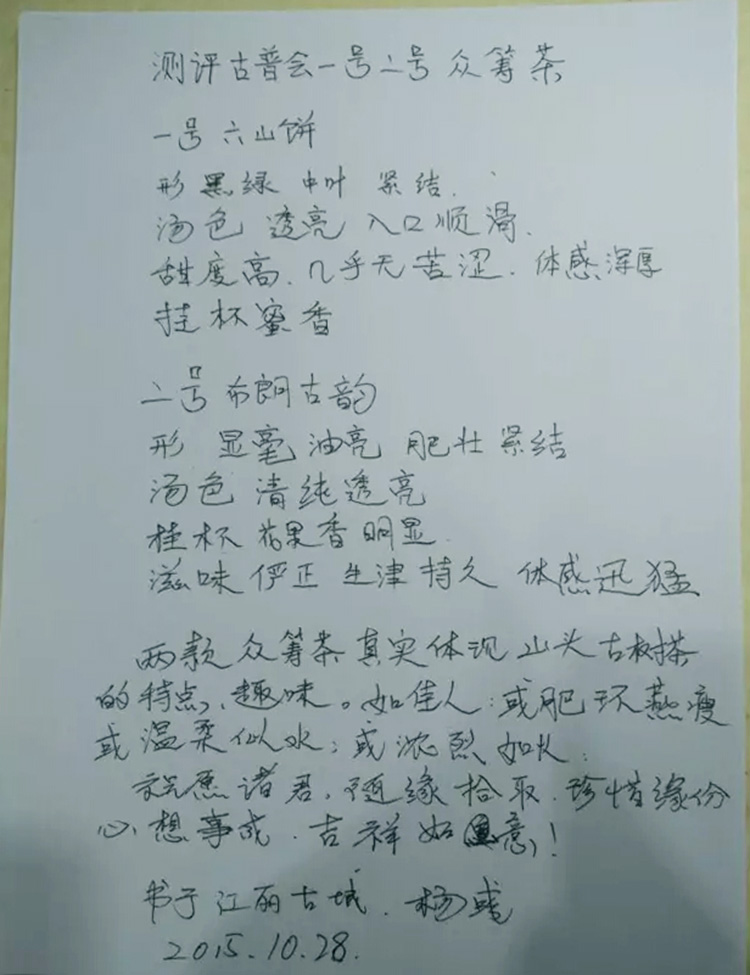 测评古普会一号二号众筹茶
一号六山饼
形 黑绿 中叶 紧结.
汤色 透亮 入口顺滑.
甜度高.几乎无苦涩.体感深厚
挂杯蜜香
二号布朗古韵
形 显毫油亮 肥壮紧结
汤色 清纯透亮
挂杯 花果香明显.
滋味 俨正 生津持久 体感迅猛
两款众筹茶真实体现山头古树茶
的特点、趣味。如佳人:或肥环燕瘦
或温柔似水;或浓烈如火;
祝愿诸君,随缘拾取.珍惜缘份
心想事成.吉祥如意!
书于江丽古城.杨
2015.10.28.